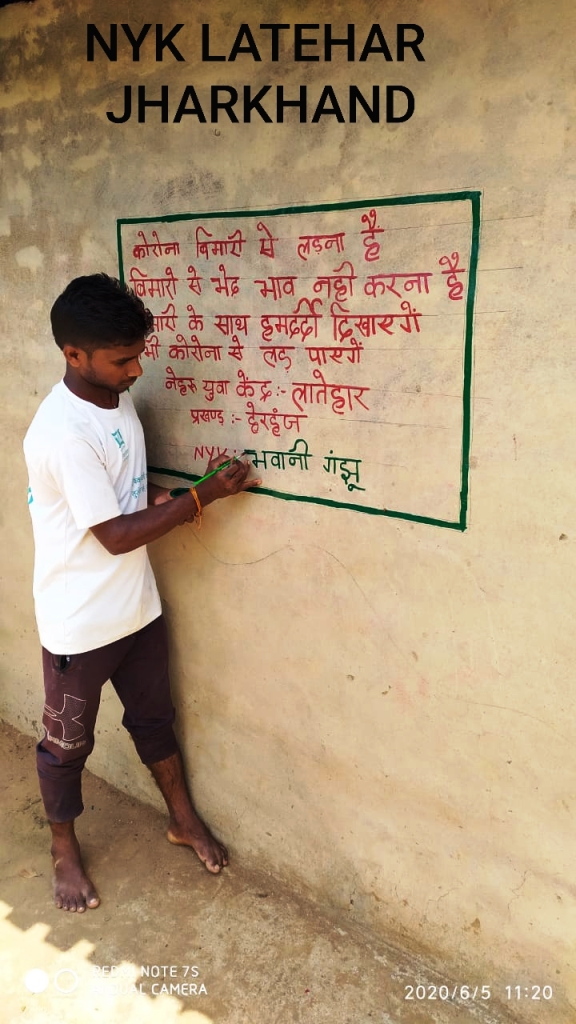 NYK LATEHAR
JHARKHAND
कोरोना बिमारी से लड़ना है
बिमारी से भेद भाव नही करना है
मारी के साथ हमदर्दी दिखाएगें
भी कोरोना से लड़ पाएगें
नेहरू युवा केंद्र :- लातेहार
प्रखण्ड :- हेरहंज
NYK : भवानी गंझू
NOTE 7S
CAMERA
2020/6/5 11:20